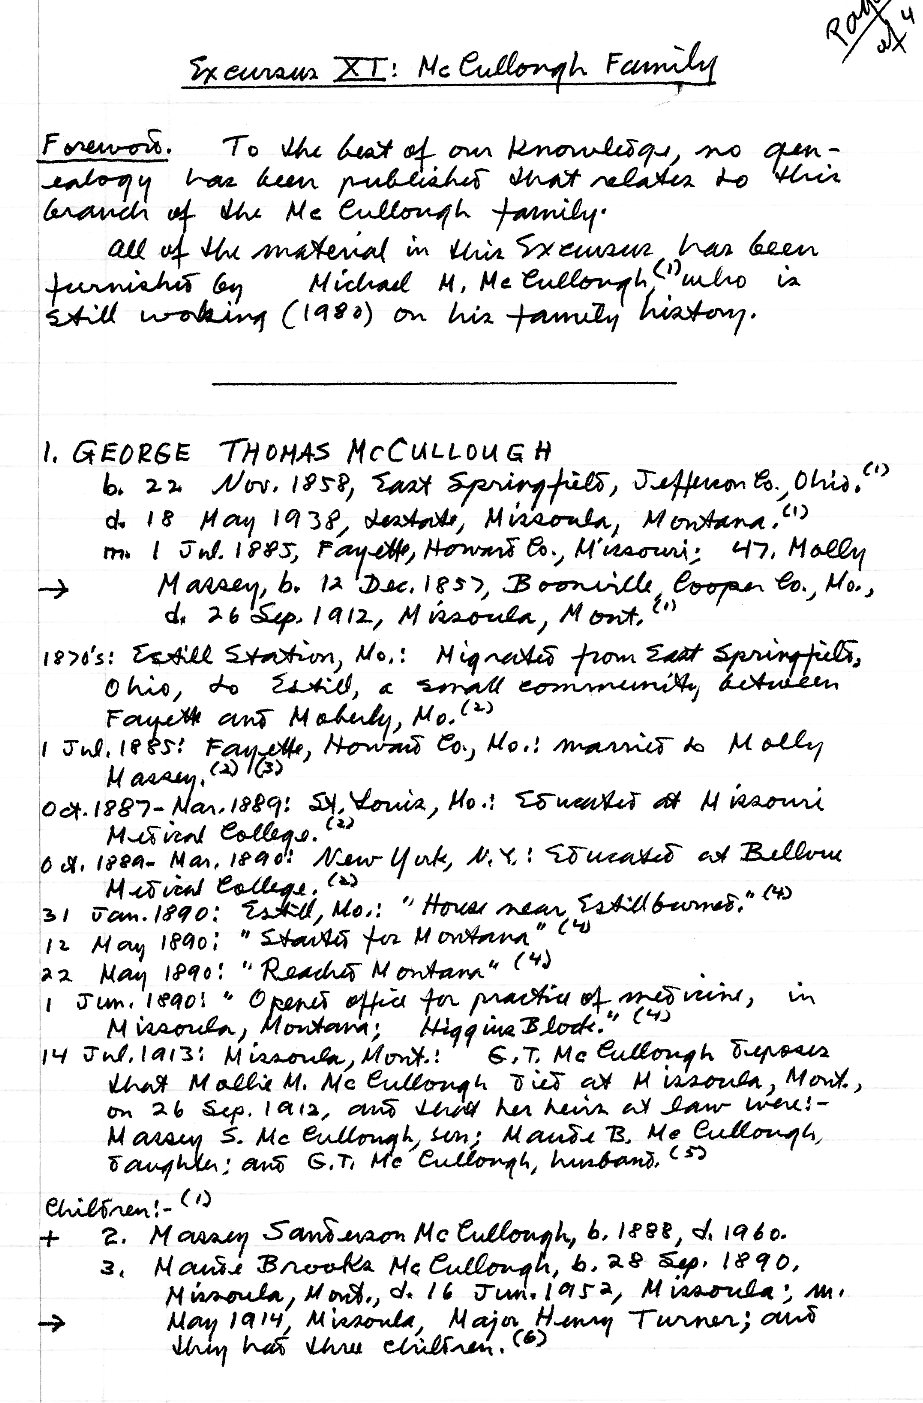 Page
of 4
Excursus XI: McCullough Family
Foreword. To the best of our knowledge, no gen-
ealogy has been published that relates to this
branch of the McCullough family.
All of the material in this Excursus has been
furnished by Michael M. McCullough,(1) who is
still working (1980) on his family history.
1. GEORGE THOMAS McCULLOUGH
b. 22 Nov. 1858, East Springfield, Jefferson Co., Ohio.(1)
d. 18 May 1938, testate, Missoula, Montana.(1)
m. 1 Jul. 1885, Fayette, Howard Co., Missouri; 47. Molly
→ Massey, b. 12 Dec. 1857, Boonville, Cooper Co., Mo.,
d. 26 Sep. 1912, Missoula, Mont.(1)
1870's: Estill Station, Mo.: Migrated from East Springfield,
Ohio, to Estill, a small community between
Fayette and Moberly, Mo.(2)
1 Jul. 1885: Fayette, Howard Co., Mo.: married to Molly
Massey.(2)(3)
Oct. 1887-Mar. 1889: St. Louis, Mo.: Educated at Missouri
Medical College.(2)
Oct. 1889-Mar. 1890: New York, N.Y.: Educated at Bellvue
Medical College.(2)
31 Jan. 1890: Estill, Mo.: "House near Estill burned."(4)
12 May 1890: "Started for Montana"(4)
22 May 1890: "Reached Montana"(4)
1 Jun. 1890: "Opened office for practice of medicine, in
Missoula, Montana; Higgins Block."(4)
14 Jul. 1913: Missoula, Mont.: G.T. McCullough deposes
that Mollie M. McCullough died at Missoula, Mont.,
on 26 Sep. 1912, and that her heirs at law were:-
Massey S. McCullough, son; Maude B. McCullough,
daughter; and G.T. McCullough, husband.(5)
Children:-(1)
+ 2. Massey Sanderson McCullough, b. 1888, d. 1960.
3. Maude Brooks McCullough, b. 28 Sep. 1890,
Missoula, Mont., d. 16 Jun. 1952, Missoula; m.
→ May 1914, Missoula, Major Henry Turner; and
they had three children.(6)